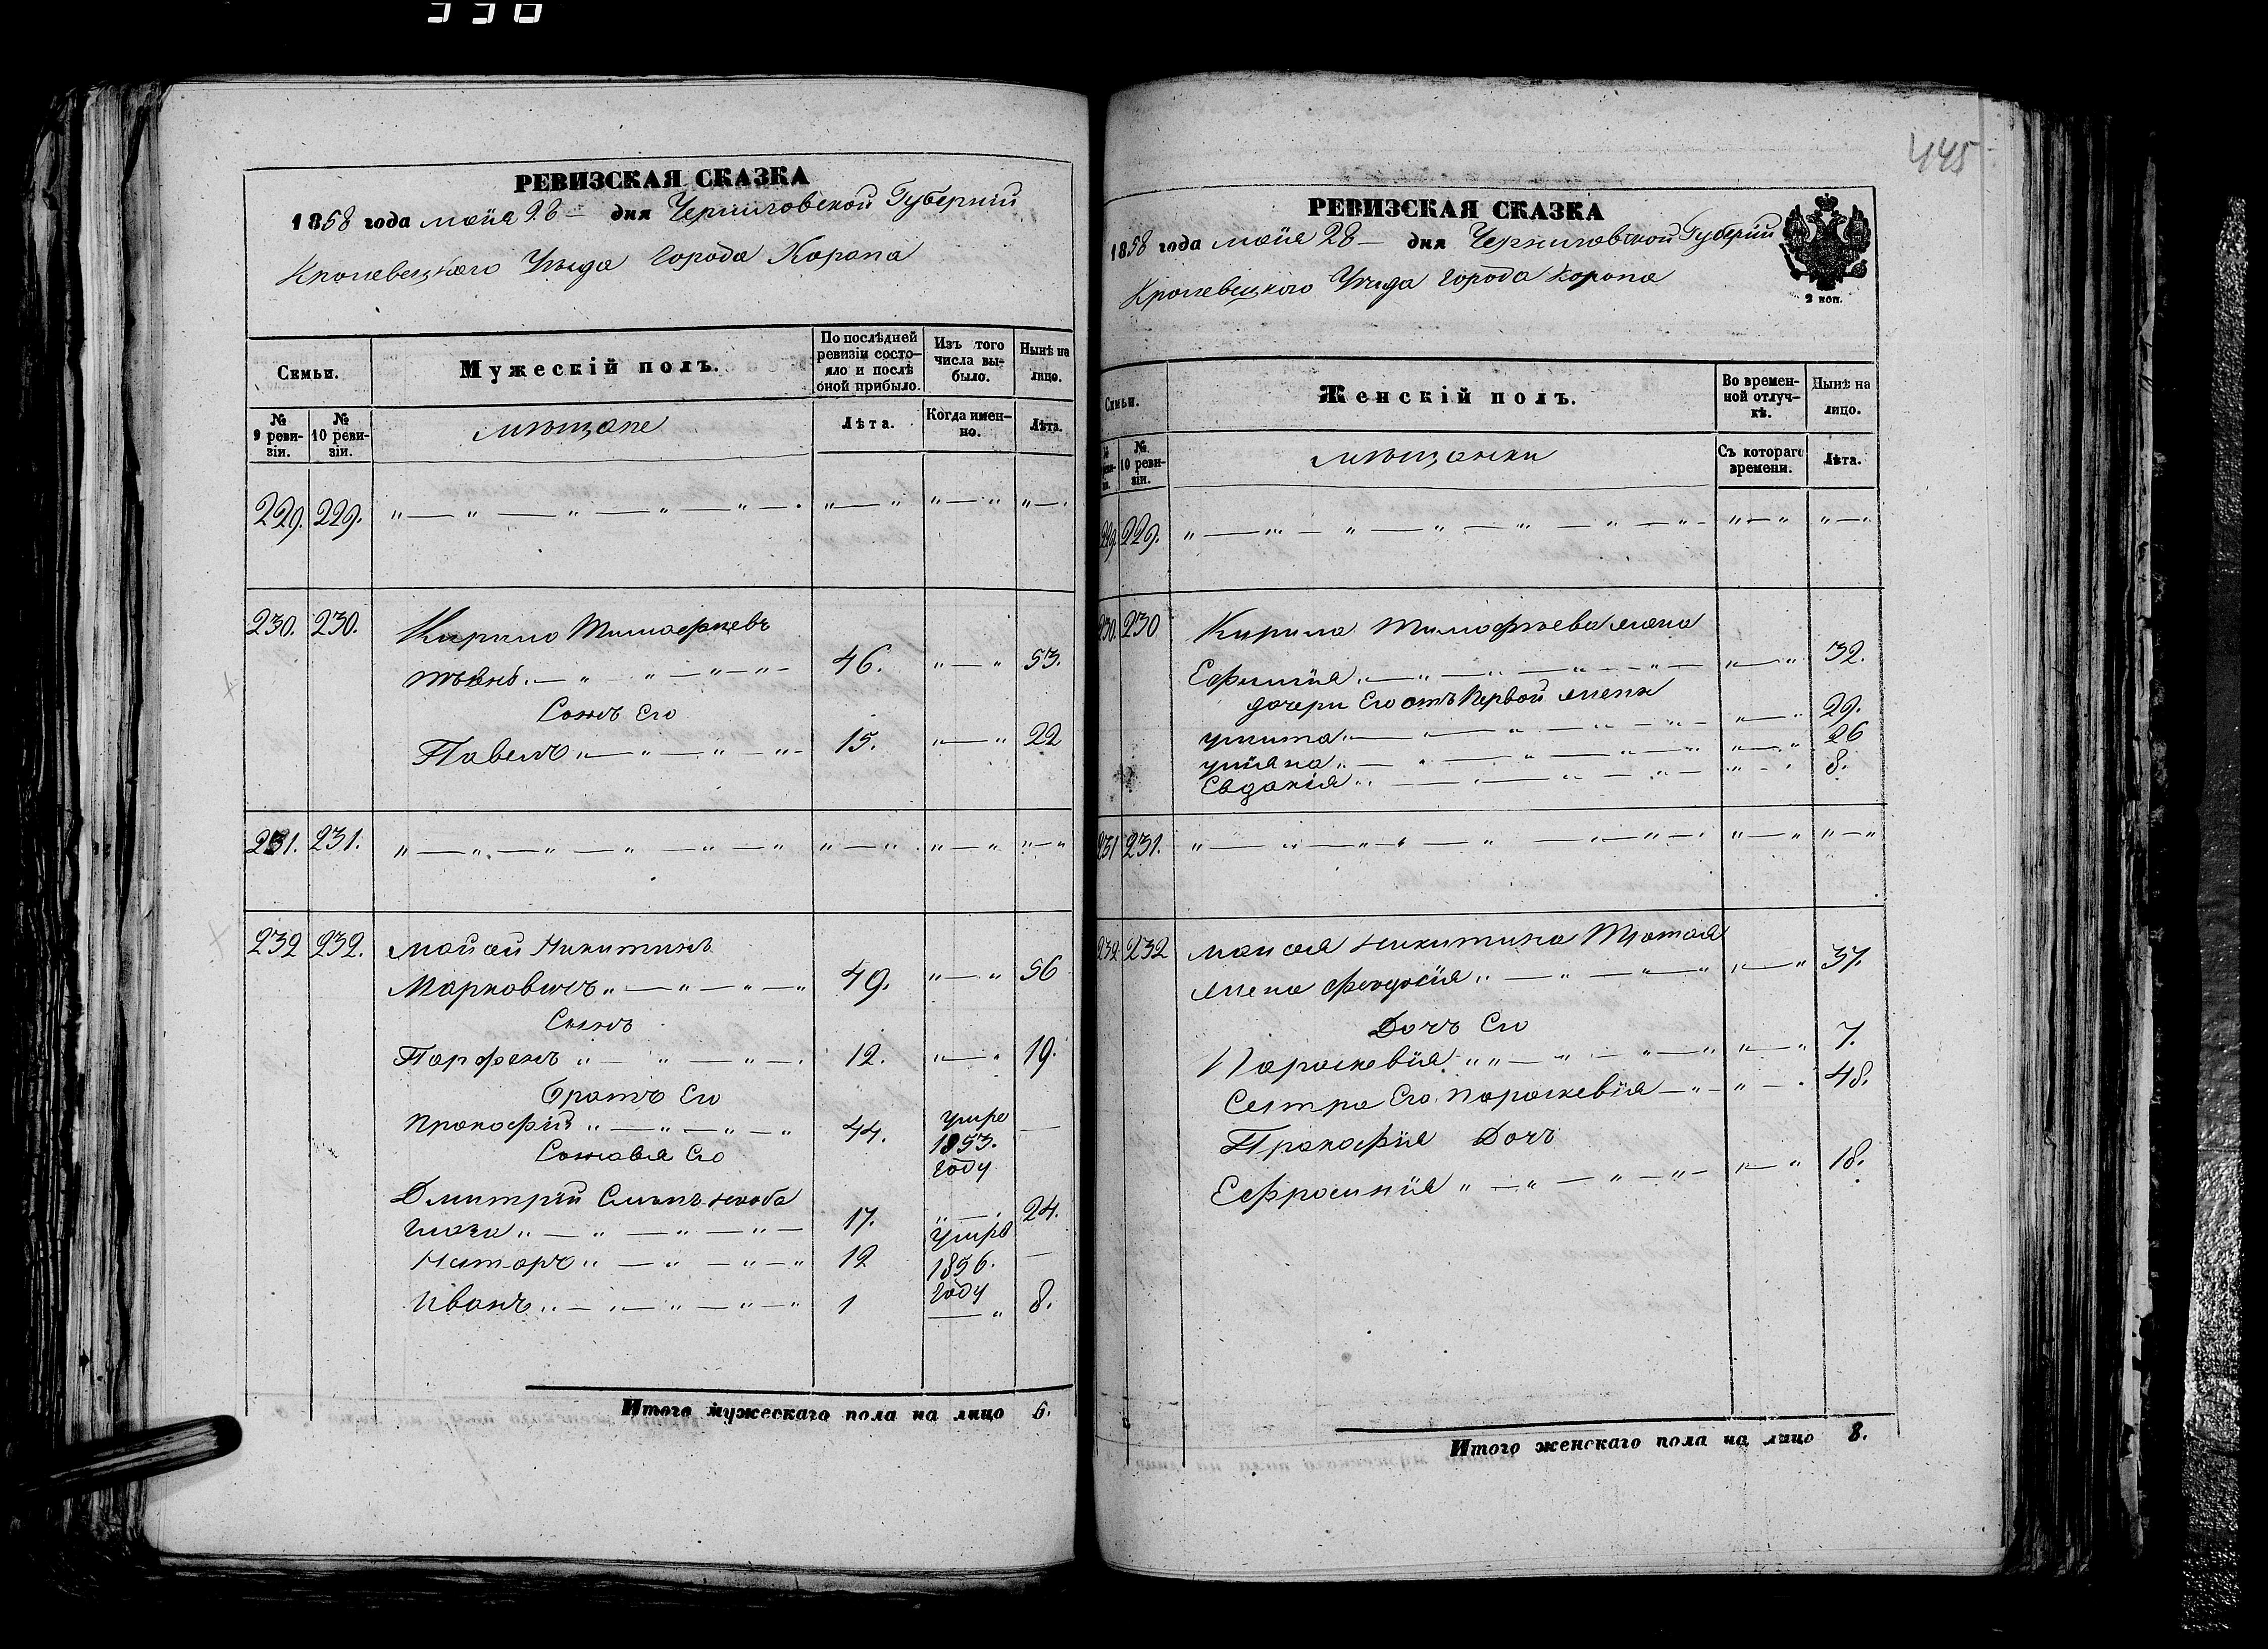 338
РЕВИЗСКАЯ СКАЗКА
1858 года мая 28 — дня Черниговской Губерніи
Кролевецкаго Уѣзда Города Коропа
Семьи.
Мужескій полъ.
По послѣдней ревизіи состо-яло и послѣ оной прибыло.
Изъ того числа вы-было.
Нынѣ на лицо.
№ 9 реви-зіи.
№ 10 реви-зіи.
мѣщане
Лѣта.
Когда имен-но.
Лѣта.
229. 229.
230. 230. Кирило Тимофѣевъ
46. 53.
Сынъ Его
Павелъ 15. 22
231. 231.
232 232. Мойсей Никитинъ
Марковичъ 49. 56
Сынъ
Парфенъ 12. 19.
Братъ Его
Прокофій 44. умре 1853. Году —
Сыновья Его
Дмитрій
17. 24.
Несторъ 12 умре 1856. Году —
Иванъ 1 8.
Итого мужескаго пола на лицо 6.
445
РЕВИЗСКАЯ СКАЗКА
1858 года мая 28 — дня Черниговской Губерніи
Кролевецкого Уѣзда Города Коропа
2 коп.
Семьи.
Женскій полъ.
Во времен-ной отлуч-кѣ.
Нынѣ на лицо.
№ 10 реви-зіи.
мѣщанки
Съ котораго времени.
Лѣта.
229. 229.
230. 230 Кирила Тимофѣева жена
Ефимія 32.
дочери Его отъ Первой жены
29.
уліяна 26
Евдокія 8.
231 231.
232 232 Мойсея Никитина
жена Феодосія 37.
Дочъ Его
Параскевія 7.
Сестра Его Параскевія 48.
Прокофія Дочъ
Ефросинія 18.
Итого женскаго пола на лицо 8.